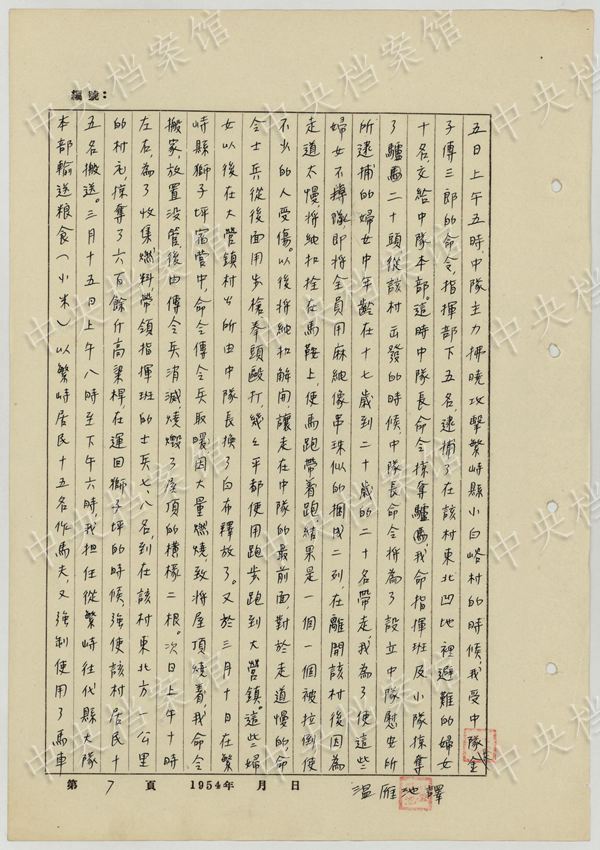 編號：
五日上午五時中隊主力拂曉攻擊繁峙縣小白峪村的時候，我受中隊金
子傳三郎的命令，指揮部下五名，逮捕了在該村東北凹地裡避難的婦女
十名，交給中隊本部。這時中隊長命令掠奪驢馬，我命指揮班及小隊掠奪
了驢馬二十頭，從該村出發的時候中隊長命令將為了設立中隊慰安所
所逮捕的婦女中年齡在十七歲到二十歲的二十名帶走，我為了使這些
婦女不掉隊，即將全員用麻繩像串珠似的捆成二列，在離開該村後因為
走道太慢，將繩扣拴在馬鞍上，使馬跑帶着跑，結果是一個一個被拉倒使
不少的人受傷。以後將繩扣解開，讓走在中隊的最前面，對於走道慢的，命
令士兵從後面用步槍拳頭毆打幾乎都使用跑步跑到大營鎮。這些婦
女以後在大營鎮村公所由中隊長換了白布釋放了。又於三月十日在繁
峙縣獅子坪宿營中，命令傳令兵取暖，因大量燃燒致將屋頂燒着，我命令
搬家，放置沒管後由傳令兵消滅燒燬了房頂的橫椽二根。次日上午十時
左右，為了收集燃料帶領指揮班的士兵七、八名，到在該村東北方一公里
的村庄，掠奪了六百餘斤高粱桿在運回獅子坪的時候，強使該村居民十
五名搬送。三月十五日上午八時至下午六時，我担任從繁峙往代縣大隊
本部輸送粮食（小米）以繁峙居民十五名作馬夫，又強制使用了馬車
第 7 頁 1954年 月 日
溫雁池譯
中央档案馆